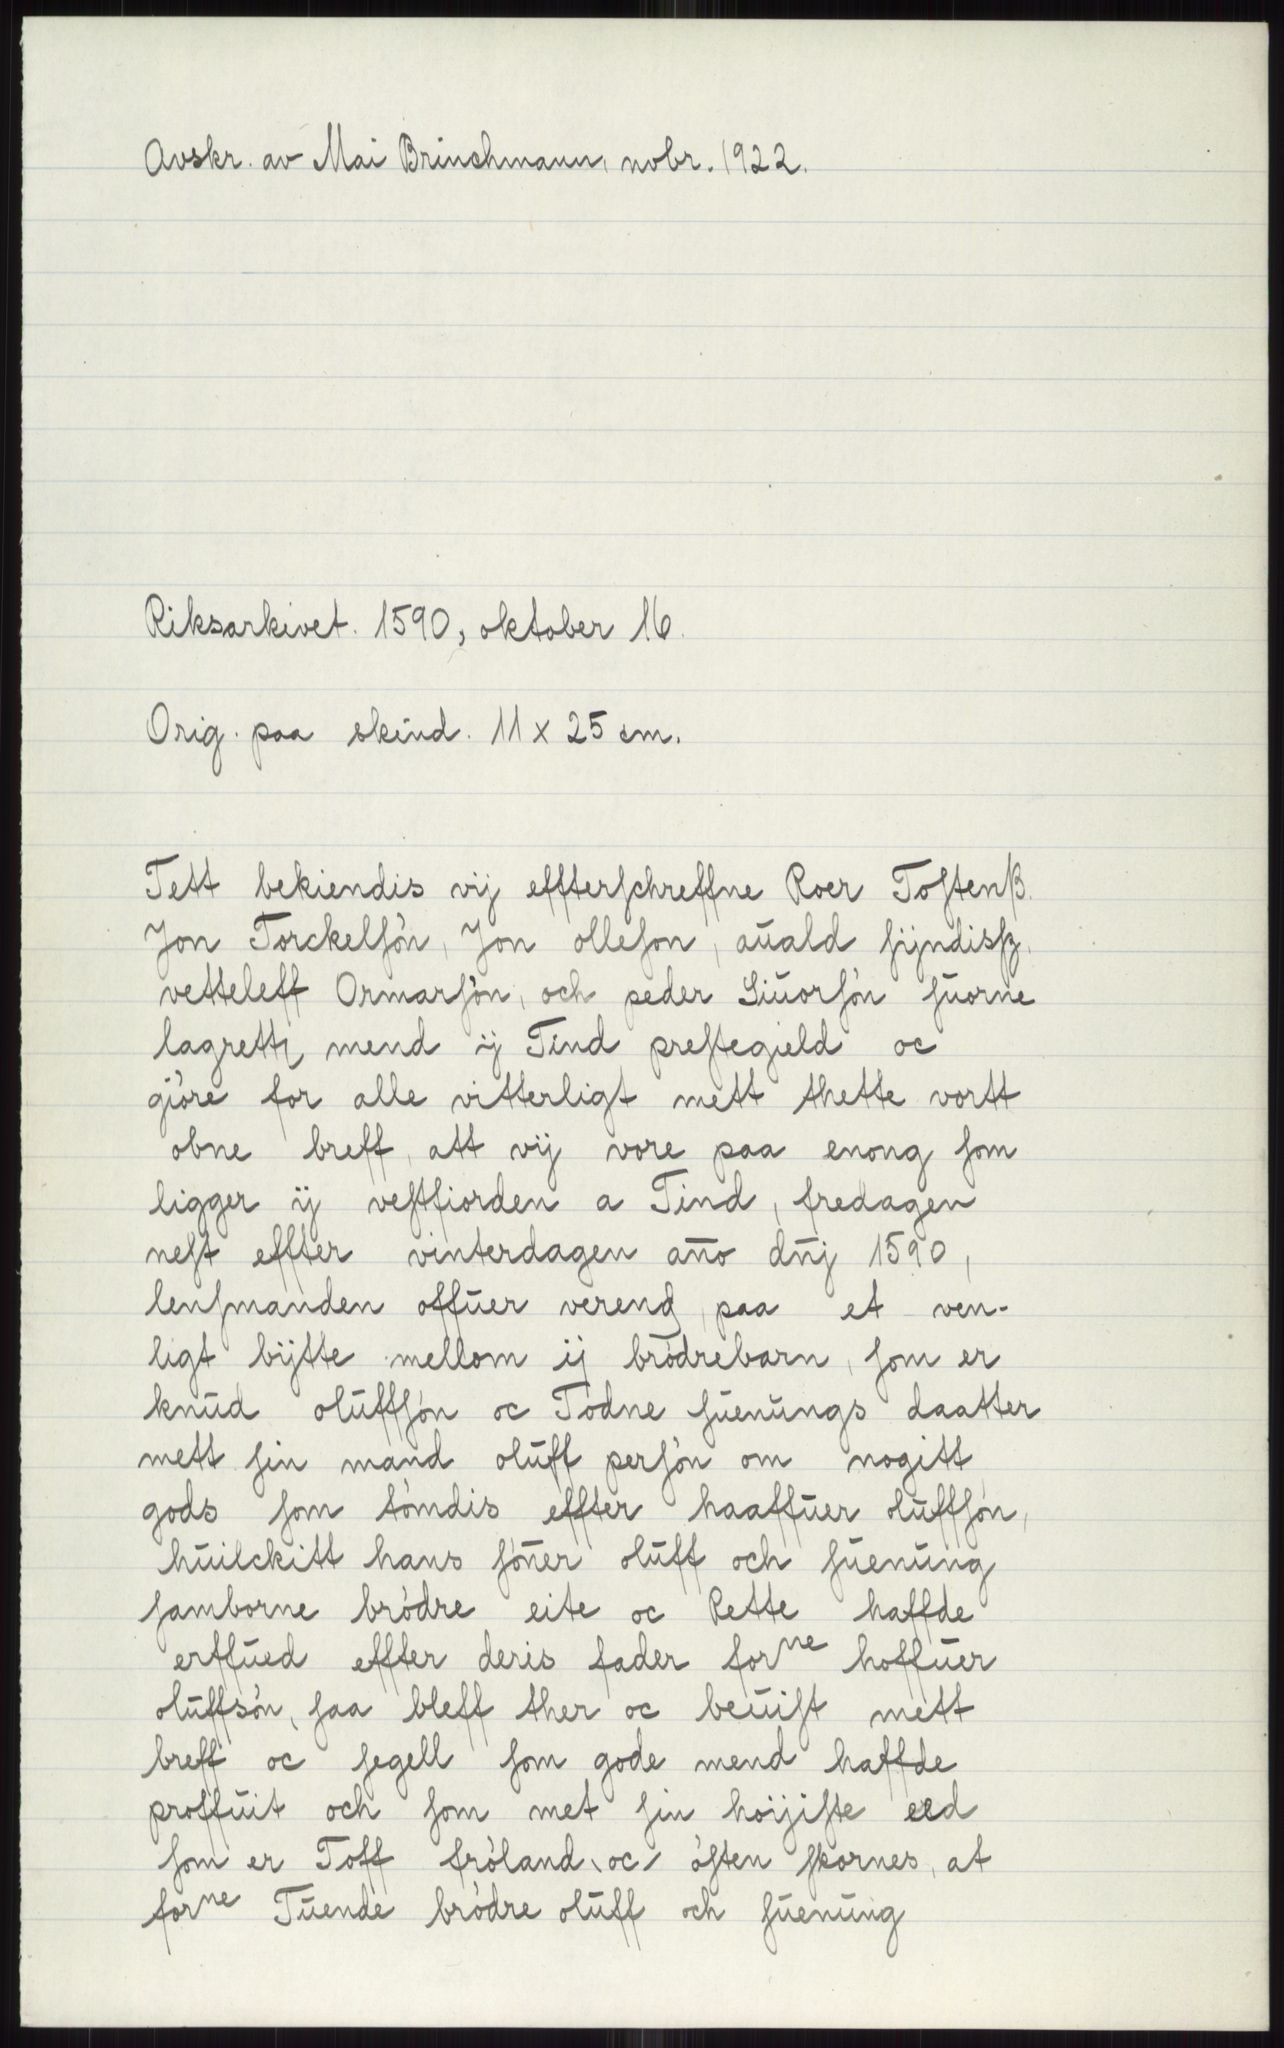 Avskr. av Mai Brinchmann, nobr. 1922.
Riksarkivet. 1590, oktober 16.
Orig. paa skind. 11 x 25 cm.
Tett bekiendis vij effterſchreffne Roer Toſtenß.
Jon Torckelſón, Jon olleſon, aŭald ſijndisſz.
vetteleff Ormarſón, och peder Siŭorſón ſŭorne
lagretti mend ij Tind preſtegield oc
gióre for alle vitterligt mett thette vortt
obne breff, att vij vore paa enong ſom
ligger ij veſtfiorden a Tind, fredagen
neſt effter vinterdagen año dñj 1590,
lenſmanden offŭer verend, paa et ven-
ligt bijtte mellom ij bródrebarn, ſom er
knŭd olŭffſón oc Todne ſŭenŭngs daatter
mett ſin mand olŭff perſón om nogitt
gods ſom tómdis effter haaffŭer olŭffſón,
hŭilckitt hans sóner olŭff och ſŭenŭng
ſamborne bródre eite oc Rette haffde
erffŭed effter deris fader forne hoffŭer
olŭffsón, ſaa bleff ther oc beŭiſt mett
breff oc ſegell ſom gode mend haffde
proffŭit och ſom met ſin hoijiſte eed
ſom er Toff fróland, oc óſten ſkornes, at
forne Tŭende bródre olŭff och ſŭenŭng